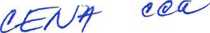 CENA ccca